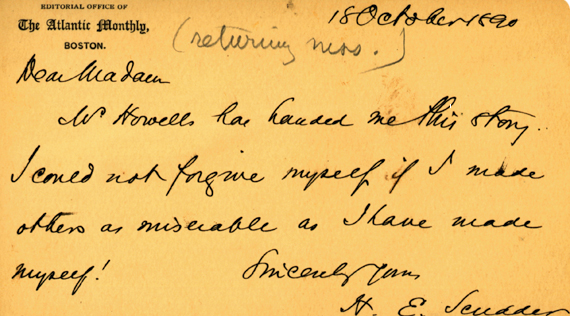 EDITORIAL OFFICE OF
The Atlantic Monthly,
BOSTON.
18 October 1890
(returning mss.)
Dear Madam
Mr Howells has handed me this story.
I could not forgive myself if I made
others as miserable as I have made
myself!
Sincerely Yours
H. E. Scudder